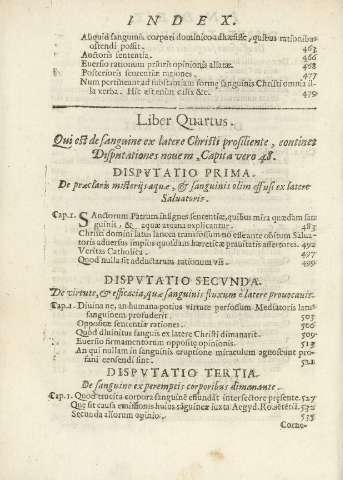 INDEX.
Aliquid sanguinis corpori dominico adhæsisse, quibus rationibus
ostendi possit. 463
Auctoris sententia. 466
Euersio rationum prioris opinionis allatæ. 468
Posterioris sententiæ rationes. 477
Num pertineant ad substantiam formę sanguinis Christi omnia il-
la verba. Hic est enim calix &c. 479
Liber Quartus.
Qui est de sanguine ex latere Christi prosiliente, continet
Disputationes nouem, Capita vero 48.
DISPVTATIO PRIMA.
De præclaris misterijs aquæ, & sanguinis olim effusi ex latere
Saluatoris.
Cap.1. SAnctorum Patrum insignes sententiæ, quibus mira quædam san-
guinis, & aquæ arcana explicantur. 483
Christi domini latus lancea transfixum nō esse ante obitum Salua-
toris aduersus impius quosdam hæreticæ prauitatis assertores. 492
Veritas Catholica. 497
Quod nulla sit adductarum rationum vis. 499
DISPVTATIO SECVNDA.
De virtute, & efficacia, quæ sanguinis fluxum è latere prouocauit.
Cap.1. Diuina ne, an humana potius virtute perfossum Mediatoris latus
sanguinem profuderit. 503
Oppositæ sententiæ rationes. 506
Quòd diuinitus sanguis ex latere Christi dimanarit. 509
Euersio firmamentorum oppositę opinionis. 513
An qui nullam in sanguinis eruptione miraculum agnoscunt pro-
fani censendi sint. 521
DISPVTATIO TERTIA.
De sanguine ex peremptis corporibus dimanante.
Cap.1. Quod trucita corpora sanguinē effundāt intersectore presente. 527
Que sit causa emissionis huius sāguineæ iuxta Aegyd. Romē sētētiā. 532
Secunda aliorum opinio. 535
Corne-